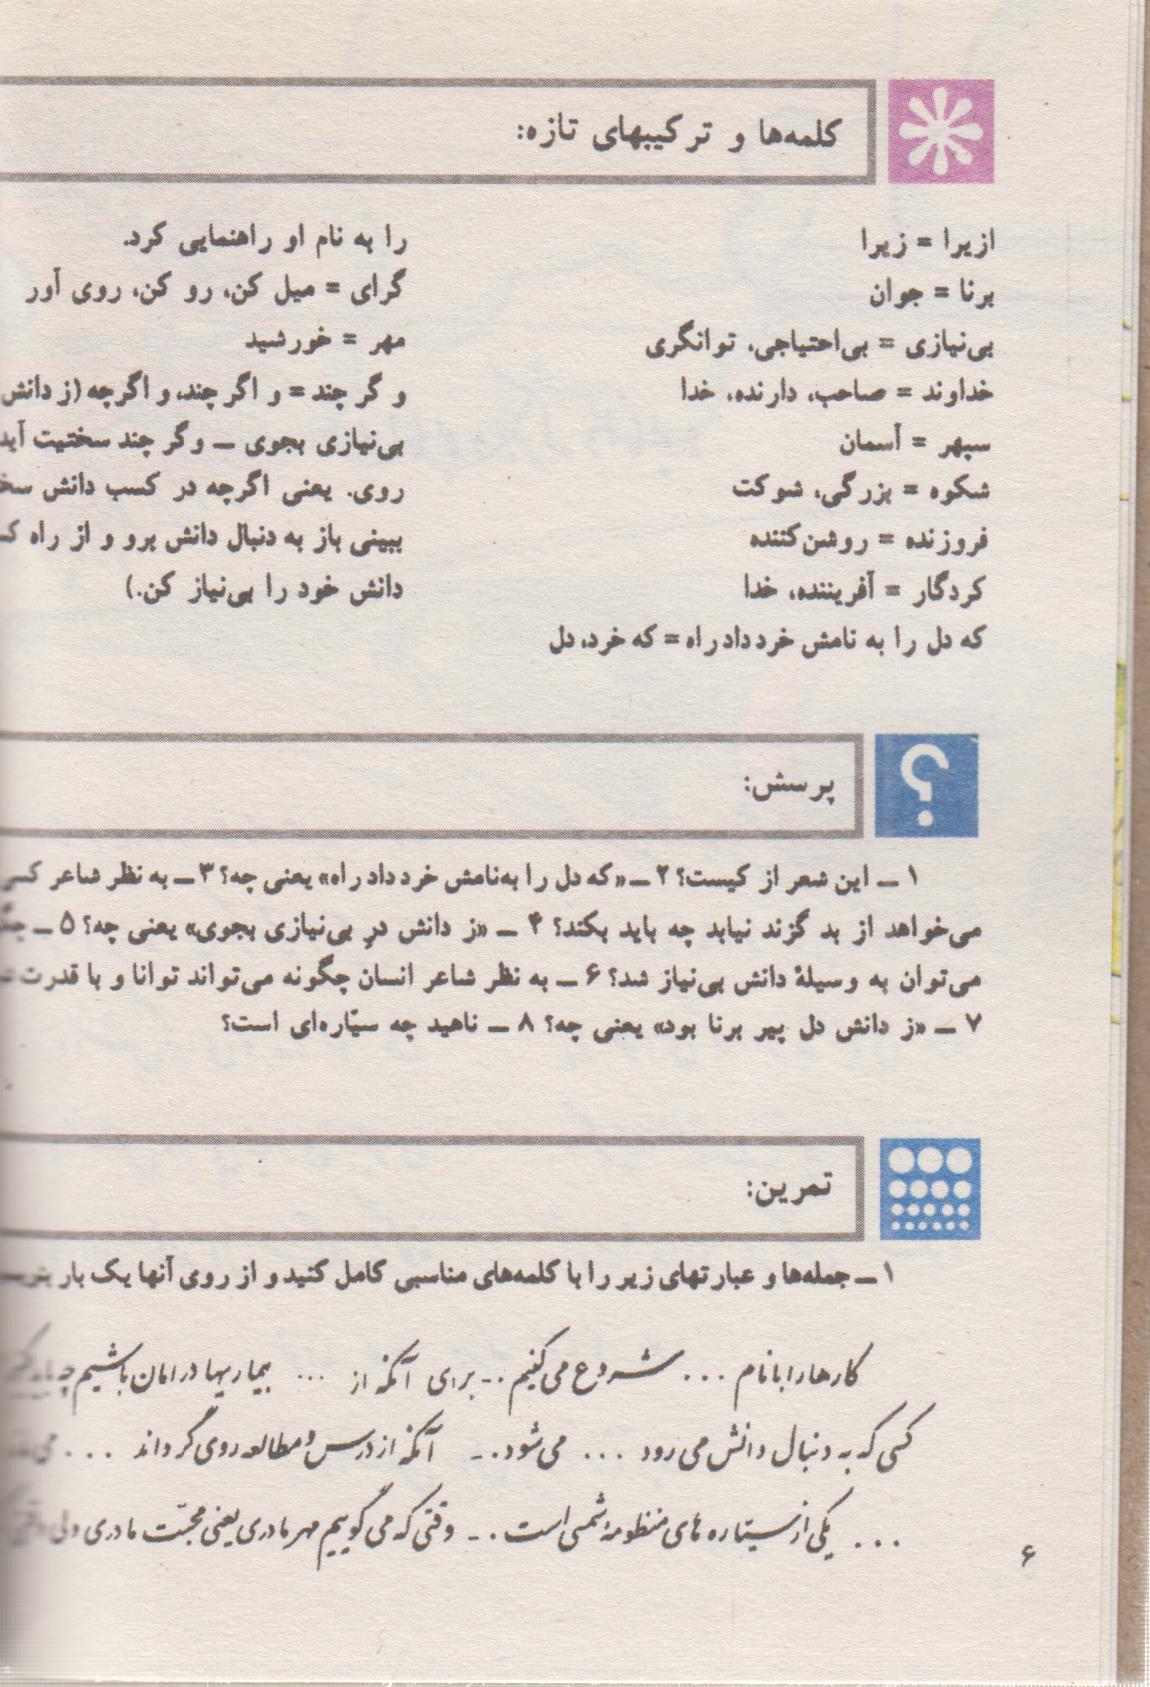 کلمه‌ها و ترکیبهای تازه:
ازیرا = زیرا
برنا = جوان
بی‌نیازی = بی‌احتیاجی، توانگری
خداوند = صاحب، دارنده، خدا
سپهر = آسمان
شکوه = بزرگی، شوکت
فروزنده = روشن‌کننده
کردگار = آفریننده، خدا
که دل را به نامش خرد داد راه = که خرد، دل
را به نام او راهنمایی کرد.
گرای = میل کن، رو کن، روی آور
مهر = خورشید
و گر چند = و اگر چند، و اگرچه (ز دانش
بی‌نیازی بجوی ــ وگر چند سختیت آید
روی. یعنی اگرچه در کسب دانش
ببینی باز به دنبال دانش برو و از راه
دانش خود را بی‌نیاز کن.)
پرسش:
۱ ــ این شعر از کیست؟ ۲ ــ «که دل را به‌نامش خرد داد راه» یعنی چه؟ ۳ ــ به نظر شاعر کسی
می‌خواهد از بد گزند نیابد چه باید بکند؟ ۴ ــ «ز دانش درِ بی‌نیازی بجوی» یعنی چه؟ ۵ ــ
می‌توان به وسیلهٔ دانش بی‌نیاز شد؟ ۶ ــ به نظر شاعر انسان چگونه می‌تواند توانا و با قدرت
۷ ــ «ز دانش دل پیر برنا بود» یعنی چه؟ ۸ ــ ناهید چه سیّاره‌ای است؟
تمرین:
۱ ــ جمله‌ها و عبارتهای زیر را با کلمه‌های مناسبی کامل کنید و از روی آنها یک بار
کارها را با نام ... شروع می‌کنیم .ــ برای آنکه از ... بیماریها در امان باشیم چه باید
کسی که به دنبال دانش می‌رود ... می‌شود.ــ آنکه از درس و مطالعه روی گرداند ...
... یکی از ستاره‌های منظومهٔ شمسی است .ــ وقتی که می‌گوییم مهر مادری یعنی محبّت مادری ولی
۶